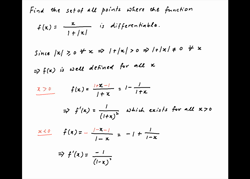 Find the set of all points where the function
f(x) = x / (1+|x|) is differentiable.
Since |x| ≥ 0 ∀ x ⇒ 1+|x| > 0 ⇒ 1+|x| ≠ 0 ∀ x
⇒ f(x) is well defined for all x
x > 0 f(x) = (1+x-1)/(1+x) = 1 - 1/(1+x)
⇒ f'(x) = 1/(1+x)² which exists for all x>0
x<0 f(x) = - (1-x-1)/(1-x) = -1 + 1/(1-x)
⇒ f'(x) = -1/(1-x)²